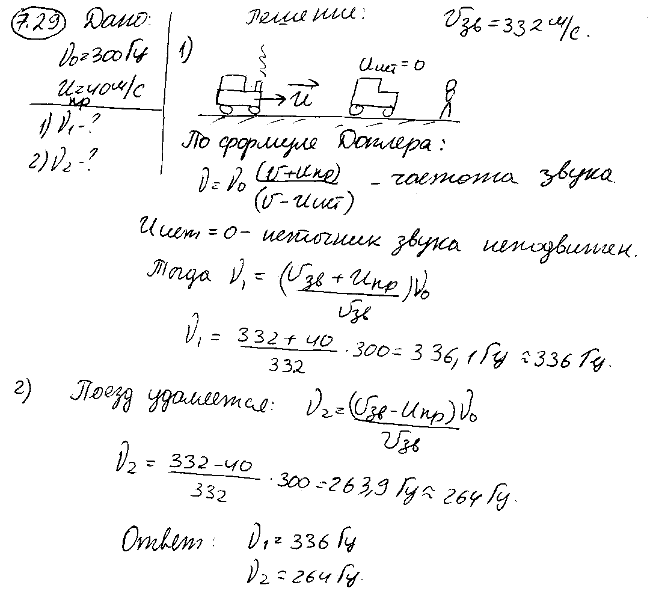 7.29 Дано: Решение: Uзв = 332 м/с.
ν₀ = 300 Гц
Uпр = 40 м/с
1) ν₁ - ?
2) ν₂ - ?
1)
u⃗ Uист = 0
По формуле Доплера:
ν = ν₀ (v + Uпр) / (v - Uист) - частота звука
Uист = 0 - источник звука неподвижен.
Тогда ν₁ = (Uзв + Uпр) ν₀ / Uзв
ν₁ = (332 + 40) / 332 · 300 = 336,1 Гц ≈ 336 Гц.
2) Поезд удаляется: ν₂ = (Uзв - Uпр) ν₀ / Uзв
ν₂ = (332 - 40) / 332 · 300 = 263,9 Гц ≈ 264 Гц.
Ответ: ν₁ = 336 Гц
ν₂ = 264 Гц.